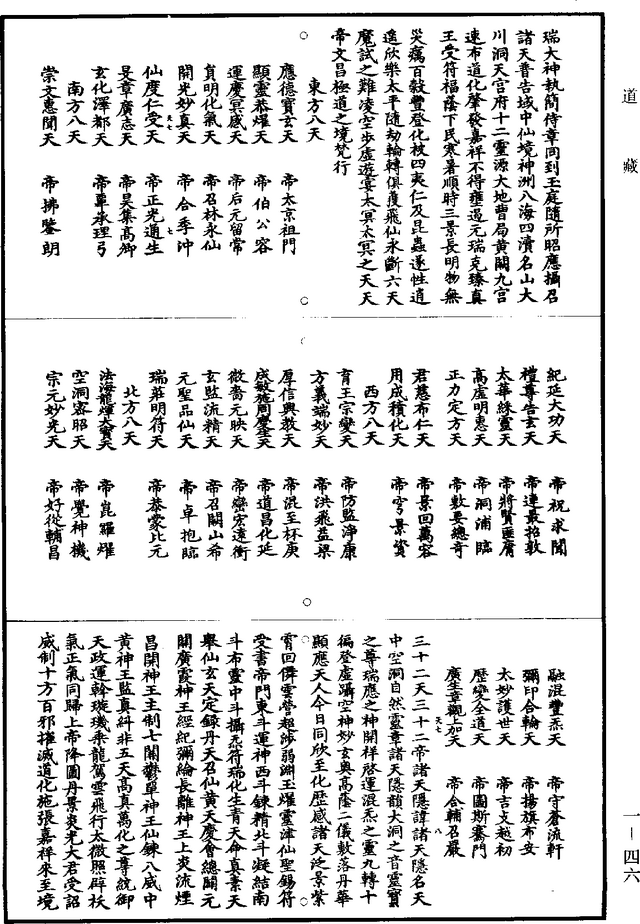 道藏
瑞大神執簡侍章同到玉庭隨所昭應攝召
諸天普告域中仙境神洲八海四瀆名山大
川洞天宮府十二靈源大地曹局黃闕九宮
速布道化肇發嘉祥不得壅遏元瑞克臻真
王受符福蔭下民寒暑順時三景長明物無
災癘百穀豐登化被四夷仁及昆蟲遂性逍
遙欣樂太平隨劫輪轉俱獲飛仙永斷六天
魔試之難凌空步虛遊宴太冥太冥之天天
帝文昌極道之境梵行
東方八天
應德寶玄天 帝太京祖門
顯靈恭燿天 帝伯公容
運慶冥感天 帝后元留常
真明化氣天 帝召林永仙
開光妙真天 帝合季沖
仙度仁受天 帝正光通生
旻章廣志天 帝昊集高御
玄化澤都天 帝單承理弓
南方八天
崇文惠聞天 帝拂鑒朗
紀延大功天 帝祝求聞
禮尊告玄天 帝連最招敦
太華綠靈天 帝將賢匪膺
高虛明惠天 帝洞浦臨
正力定方天 帝數要總奇
君慈布仁天 帝景回萬容
用成積化天 帝穹景資
西方八天
育王宗變天 帝防監淨康
方義瑞妙天 帝洪飛益梁
厚信興教天 帝混至林庚
成敏施周慶奎天 帝道昌化延
微喬元映天 帝巒宏遠衡
玄監流精天 帝召闕山希
元聖品仙天 帝卓抱臨
瑞莊明符天 帝恭蒙比元
北方八天
法海龍煇大寶天 帝崑羅燿
空洞容昭天 帝覺神機
宗元妙光天 帝好從輔昌
融混豐炁天 帝守蒼流軒
彌印合輪天 帝揚旗布安
太妙護世天 帝吉支越初
歷變全道天 帝圖斯騫門
廣生章觀上加天 帝合輔召嚴
三十二天三十二帝諸天隱諱諸天隱名天
中空洞自然靈章諸天隱韻大洞之音靈寶
之尊瑞應之神開祥啓運混炁之靈九轉十
徧登虛躡空神妙玄奧高蔭二儀敷落丹華
顯應天人今日同欣至化歷感諸天泛景紫
霄回傺雲營超涉弱淵玉燿靈津仙聖錫符
受書帝門東斗運神西斗錬精北斗凝結南
斗布靈中斗攝炁符瑞化生青天命真素天
舉仙玄天定錄丹天召仙黃天慶會總關元
開廣霞神王經紀彌綸長離神王上炎流煙
昌開神王主制七關鬱單神王仙錬八威中
黃神王監真糾非五天高真萬化之尊統御
天政運幹璇璣乘龍駕雲飛行太微照辟妖
氣正氣同歸上帝降圖丹景炎光大君受詔
威制十方百邪摧滅道化施張嘉祥來至境
一—四六